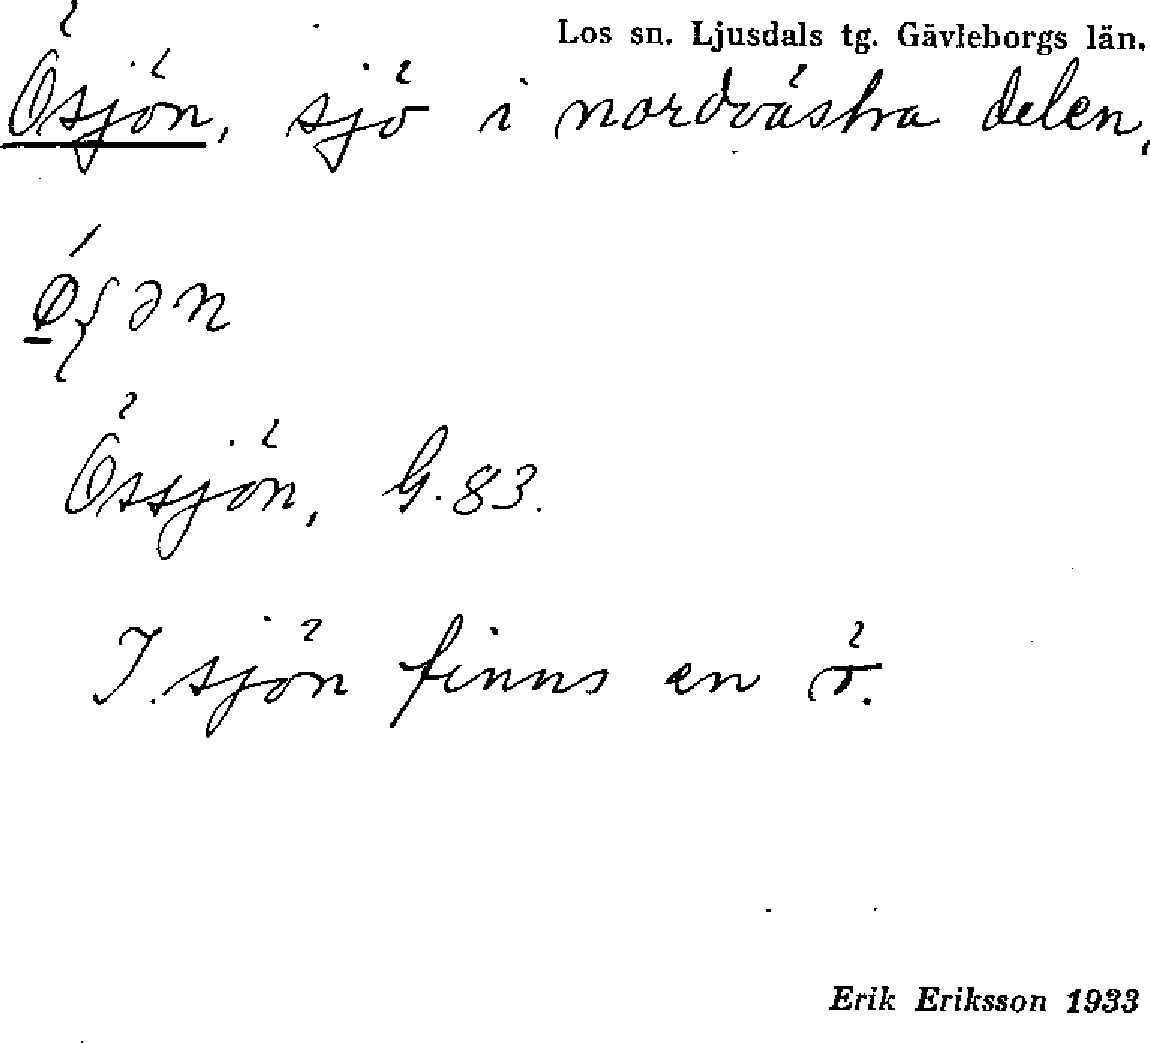 Los sn. Ljusdals tg. Gävleborgs län.
Ösjön, sjö i nordvästra delen,
Össjön, G.83.
I sjön finns en ö.
Erik Eriksson 1933